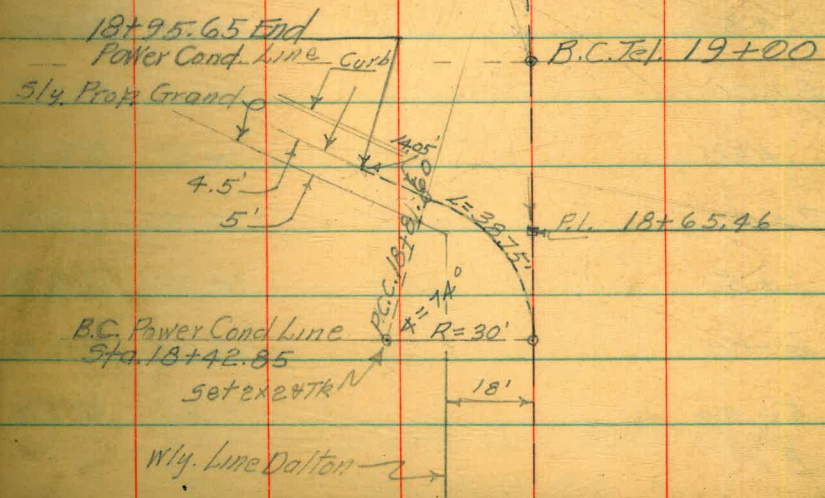 18+95.65 End
Power Cond. Line
Curb
B.C. Tel. 19+00
Sly. Prop. Grand
14.05'
4.5'
5'
L=38.75'
P.I. 18+65.46
P.C.C. 18+81.60
Δ" 74°
B.C. Power Cond Line
Sta. 18+42.85
R=30'
Set 2x2&Tk
18'
Wly. Line Dalton